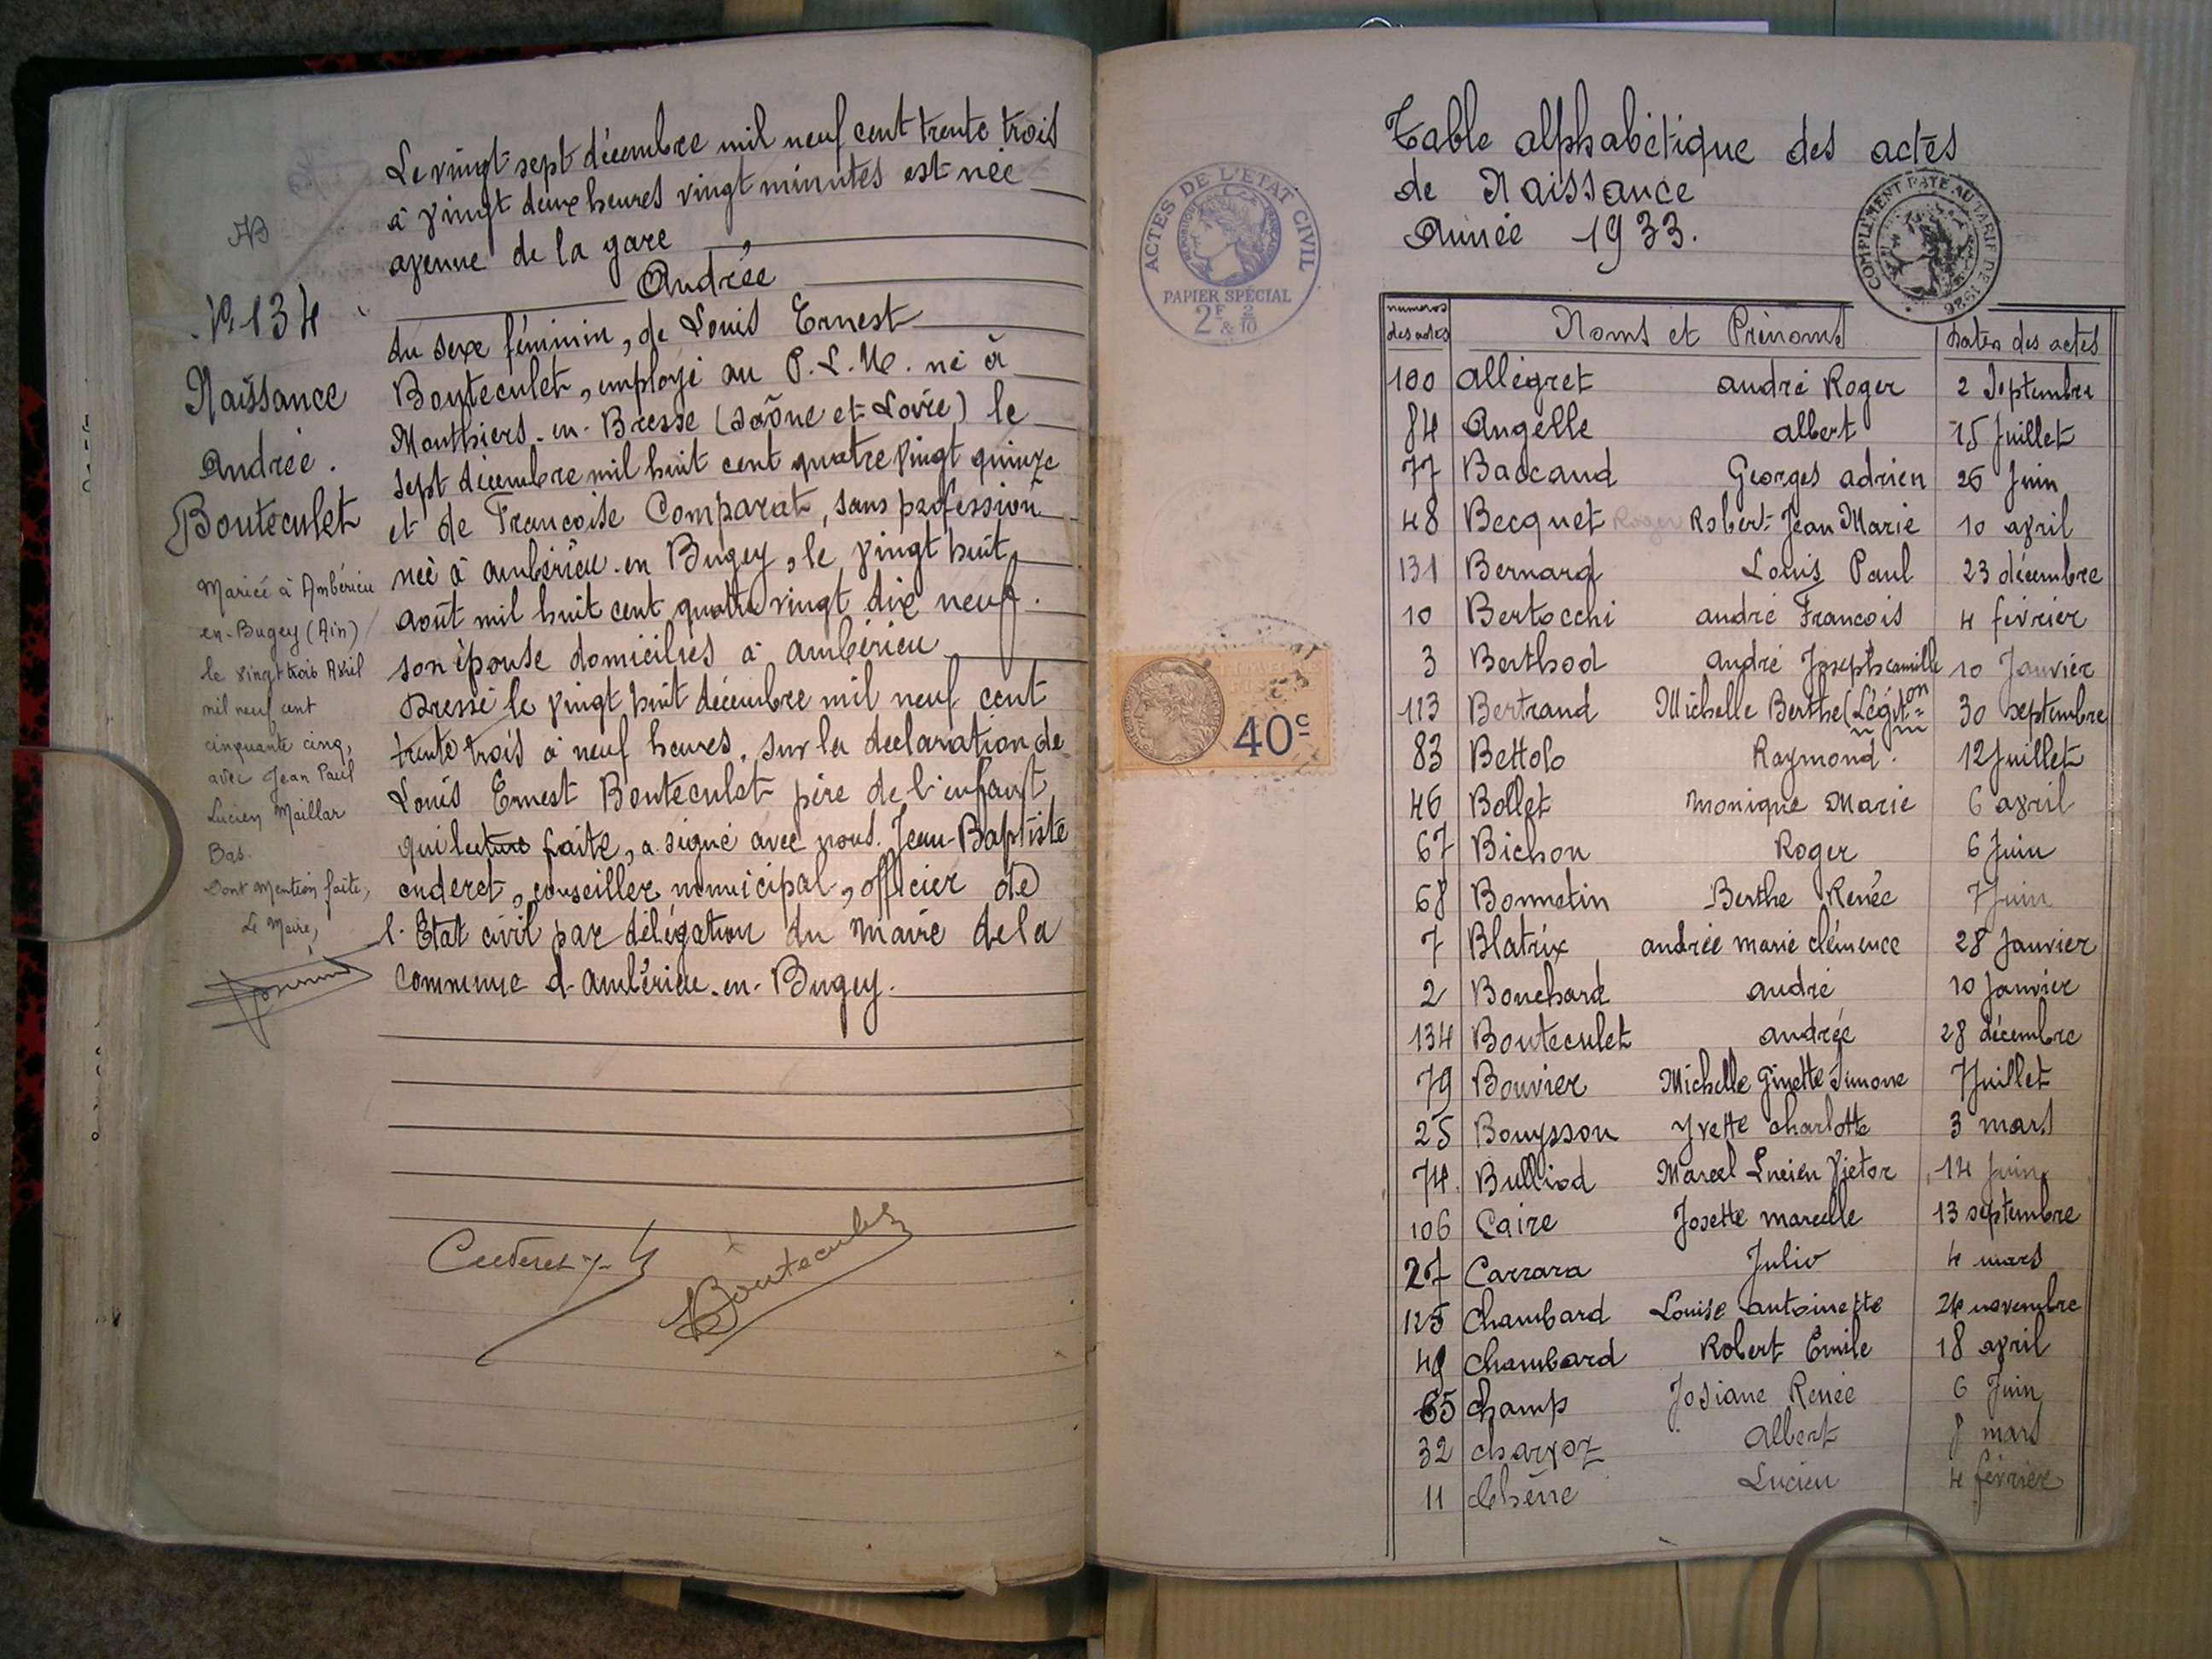 Le vingt sept décembre mil neuf cent trente trois
à vingt deux heures vingt minutes est née
avenue de la gare,
Andrée
du sexe féminin, de Louis Ernest
Bouteculet, employé au P.L.M. né à
Monthiers-en-Bresse (Saône et Loire) le
sept décembre mil huit cent quatre vingt quinze
et de Francoise Comparat, sans profession
née à Ambérieu-en-Bugey, le vingt huit
août mil huit cent quatre vingt dix neuf.
son épouse domiciliés à Ambérieu
Dressé le vingt huit décembre mil neuf cent
trente trois à neuf heures, sur la declaration de
Louis Ernest Bouteculet père de l'enfant,
qui lecture faite, a signé avec nous. Jean-Baptiste
Cuderet, conseiller municipal, officier de
l'Etat civil par délégation du Maire de la
commune d'Ambérieu-en-Bugey.
Bouteculet
N° 134
Naissance
Andrée.
Bouteculet
Mariée à Ambérieu
en-Bugey (Ain)
le vingt trois Avril
mil neuf cent
cinquante cinq,
avec Jean Paul
Lucien Maillar
Bas.
Dont Mention faite,
Le Maire,
ACTES DE L'ETAT CIVIL
PAPIER SPÉCIAL
2F & 2/10
40c
Table alphabétique des actes
de Naissance
Année 1933.
COMPLÉMENT PAYÉ AU TARIF DE 1926
numeros des actes Noms et Prénoms Dates des actes
100 Allegret André Roger 2 Septembre
84 Angelle Albert 15 Juillet
77 Baccaud Georges Adrien 26 Juin
48 Becquet Roger Robert-Jean Marie 10 avril
131 Bernard Louis Paul 23 décembre
10 Bertocchi André Francois 4 février
3 Berthod André Joseph Camille 10 Janvier
113 Bertrand Michelle Berthe (Légiton 30 septembre
83 Bettolo Raymond. 12 Juillet
46 Bollet Monique Marie 6 avril
67 Bichon Roger 6 Juin
68 Bonnetin Berthe Renée 7 Juin
7 Blatrix Andrée Marie Clémence 28 Janvier
2 Bouchard André 10 Janvier
134 Bouteculet Andrée 28 décembre
79 Bouvier Michelle Ginette Simone 7 Juillet
25 Bouysson Yvette Charlotte 3 mars
74 Bulliod Marcel Lucien Victor 14 Juin
106 Caire Josette Marcelle 13 septembre
27 Carrara Julio 4 mars
125 Chambard Louise Antoinette 26 novembre
49 Chambard Robert Emile 18 avril
65 Champ Josiane Renée 6 Juin
32 Charvoz Albert 8 mars
11 Chêne Lucien 4 février